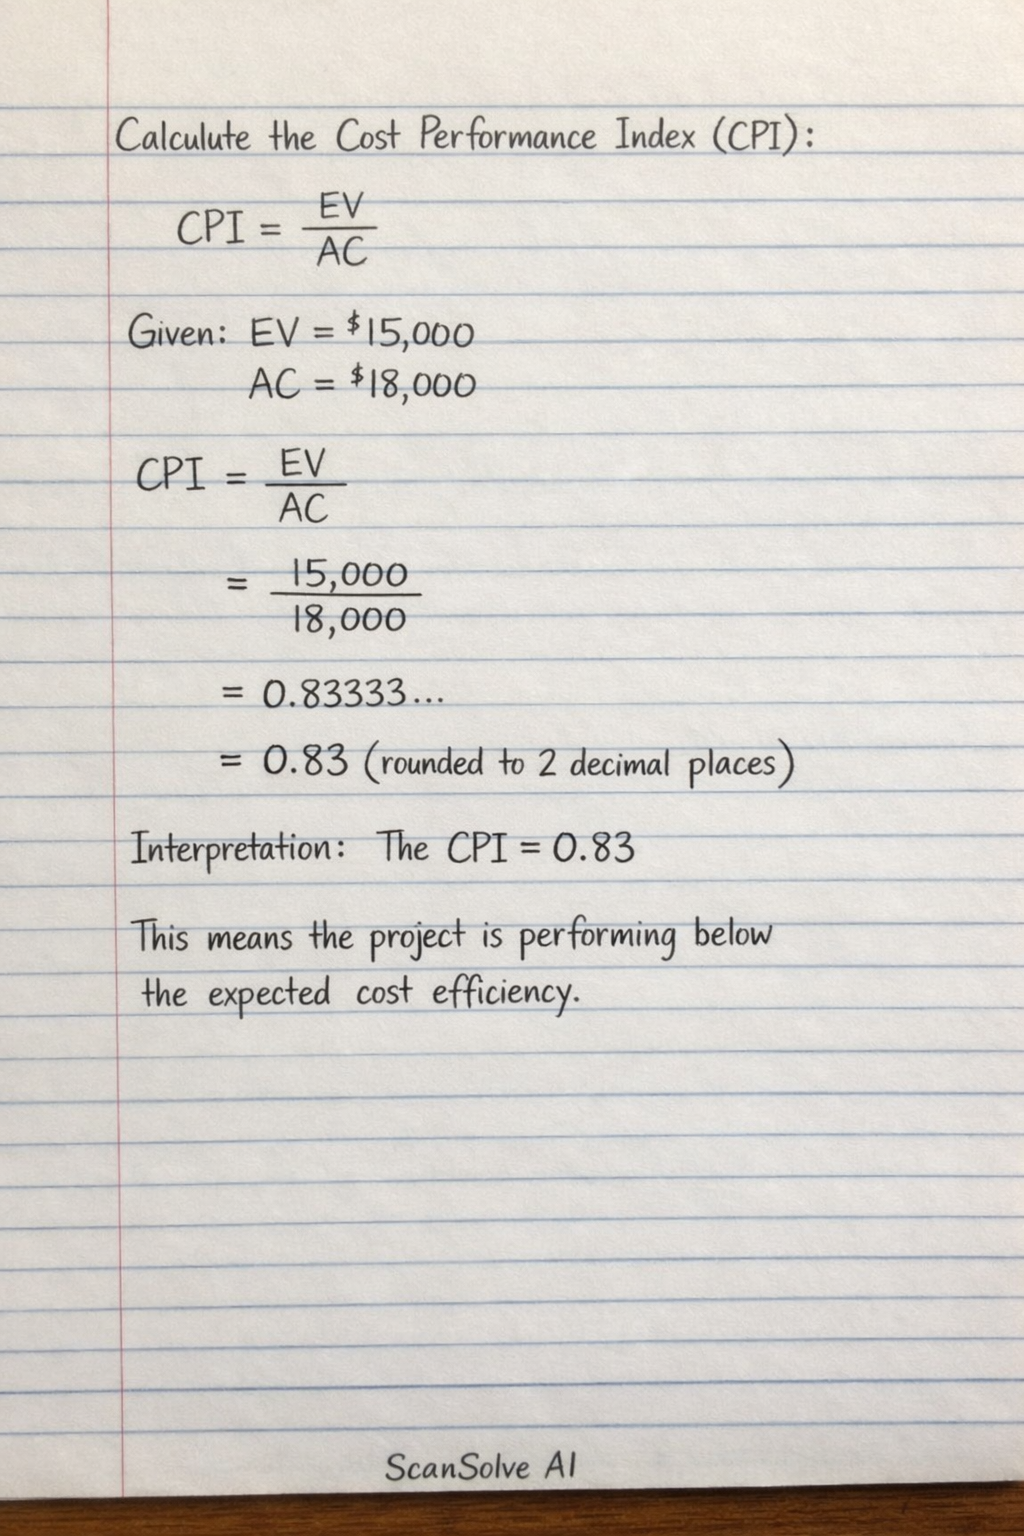 Calculute the Cost Performance Index (CPI):
CPI = EV / AC
Given: EV = $15,000
AC = $18,000
CPI = EV / AC
= 15,000 / 18,000
= 0.83333...
= 0.83 (rounded to 2 decimal places)
Interpretation: The CPI = 0.83
This means the project is performing below
the expected cost efficiency.
ScanSolve AI